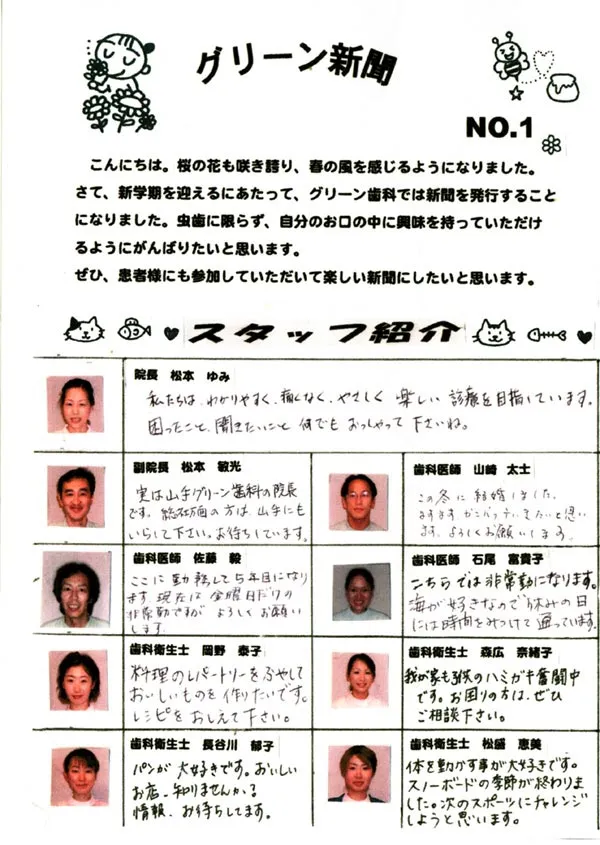 グリーン新聞
NO.1
こんにちは。桜の花も咲き誇り、春の風を感じるようになりました。
さて、新学期を迎えるにあたって、グリーン歯科では新聞を発行すること
になりました。虫歯に限らず、自分のお口の中に興味を持っていただけ
るようにがんばりたいと思います。
ぜひ、患者様にも参加していただいて楽しい新聞にしたいと思います。
スタッフ紹介
院長 松本 ゆみ
私たちは、わかりやすく、痛くなく、やさしく 楽しい 診療を目指しています。
困ったこと、聞きたいこと 何でも おっしゃって 下さいね。
副院長 松本 敏光
実は山手グリーン歯科の院長
です。総社方面の方は 山手にも
いらして下さい。お待ちしています。
歯科医師 山崎 太士
この冬に 結婚しました。
ますます がんばっていきたいと思い
ます。よろしくお願いします。
歯科医師 佐藤 毅
ここに勤務して5年目になり
ます。現在は 金曜日だけの
非常勤ですが よろしく お願い
します。
歯科医師 石尾 富貴子
こちらでは非常勤になります。
海が好きなので休みの日
には時間をみつけて 通っています。
歯科衛生士 岡野 泰子
料理のレパートリーをふやして
おいしいものを作りたいです。
レシピをおしえて下さい。
歯科衛生士 森広 奈緒子
我が家も3人のハミガキ奮闘中
です。お困りの方は、ぜひ
ご相談下さい。
歯科衛生士 長谷川 郁子
パンが大好きです。おいしい
お店、知りませんか?
情報、お待ちしてます。
歯科衛生士 松盛 恵美
体を動かす事が大好きです。
スノーボードの季節が終わりま
した。次のスポーツにチャレンジ
しようと思います。